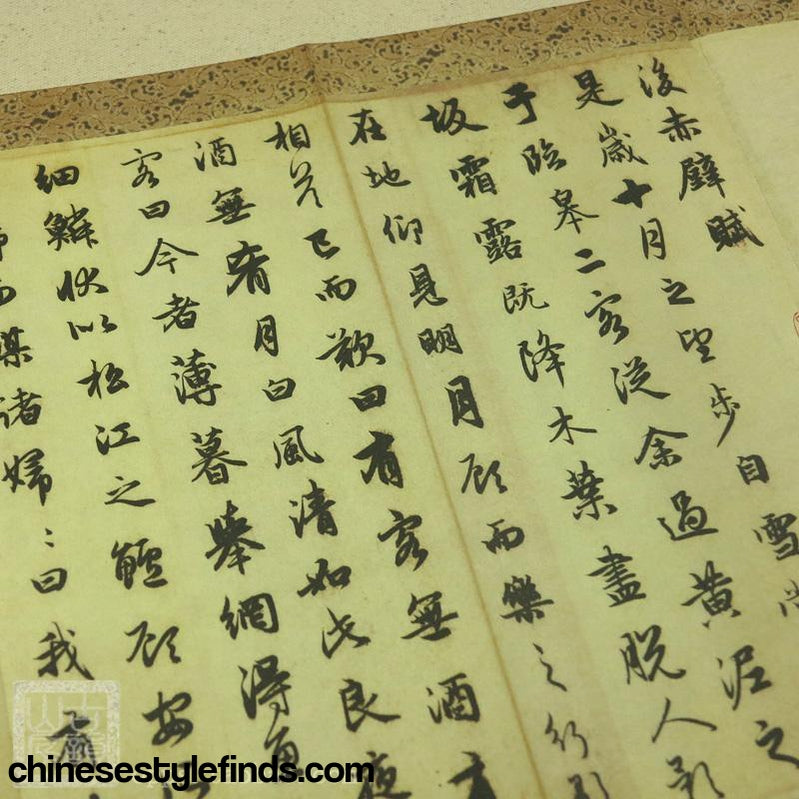 後赤壁賦
是歲十月之望步自雪
于臨皋二客從余過黃泥之
坂霜露既降木葉盡脫人影
在地仰見明月顧而樂之行歌
相答已而歎曰有客無酒有
酒無肴月白風清如此良夜
客曰今者薄暮舉網得魚
細鱗狀似松江之鱸顧安所
而謀諸婦〻曰我有
chinesestylefinds.com